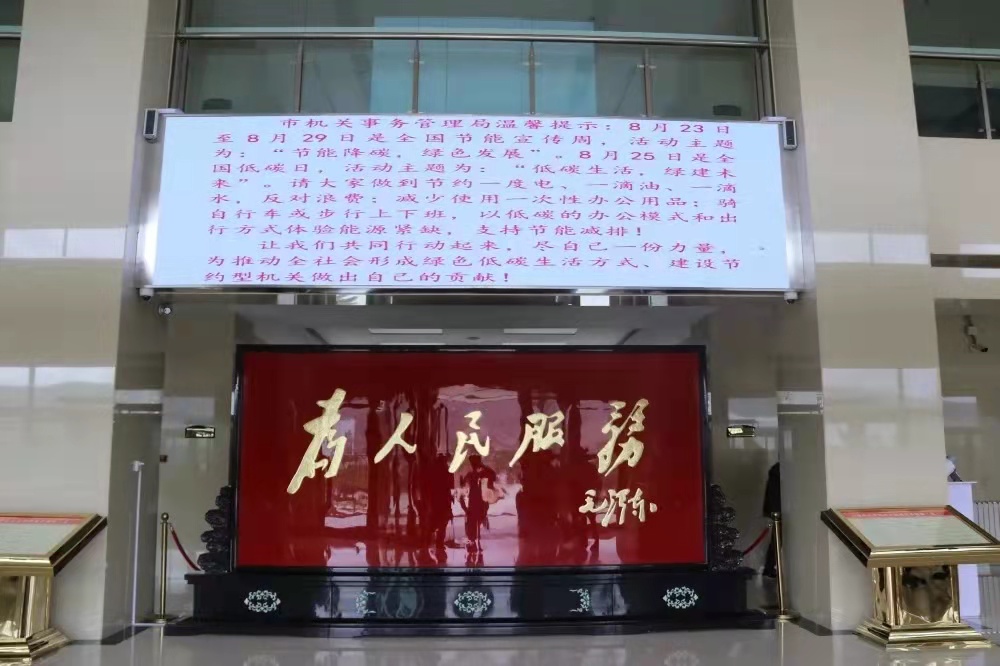 市机关事务管理局温馨提示：8月23日
至8月29日是全国节能宣传周，活动主题
为：“节能降碳，绿色发展”。8月25日是全
国低碳日，活动主题为：“低碳生活，绿建未
来”。请大家做到节约一度电、一滴油、一滴
水，反对浪费；减少使用一次性办公用品；骑
自行车或步行上下班，以低碳的办公模式和出
行方式体验能源紧缺，支持节能减排！
让我们共同行动起来，尽自己一份力量，
为推动全社会形成绿色低碳生活方式、建设节
约型机关做出自己的贡献！
为人民服务
毛泽东